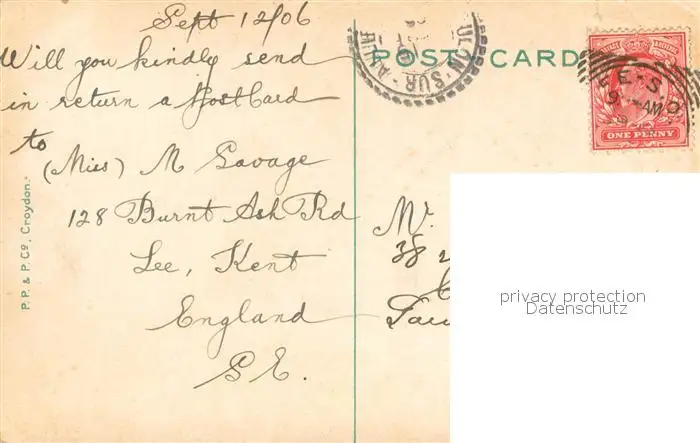 Sept 12/06
Will you kindly send
in return a PostCard
to
(Miss) M Savage
128 Burnt Ash Rd
Lee, Kent
England
S.E.
P. P. & P. Co, Croydon.
POSTCARD
SUR-AUBE
E·S.O
9 AM
ONE PENNY
M.
38
privacy protection
Datenschutz